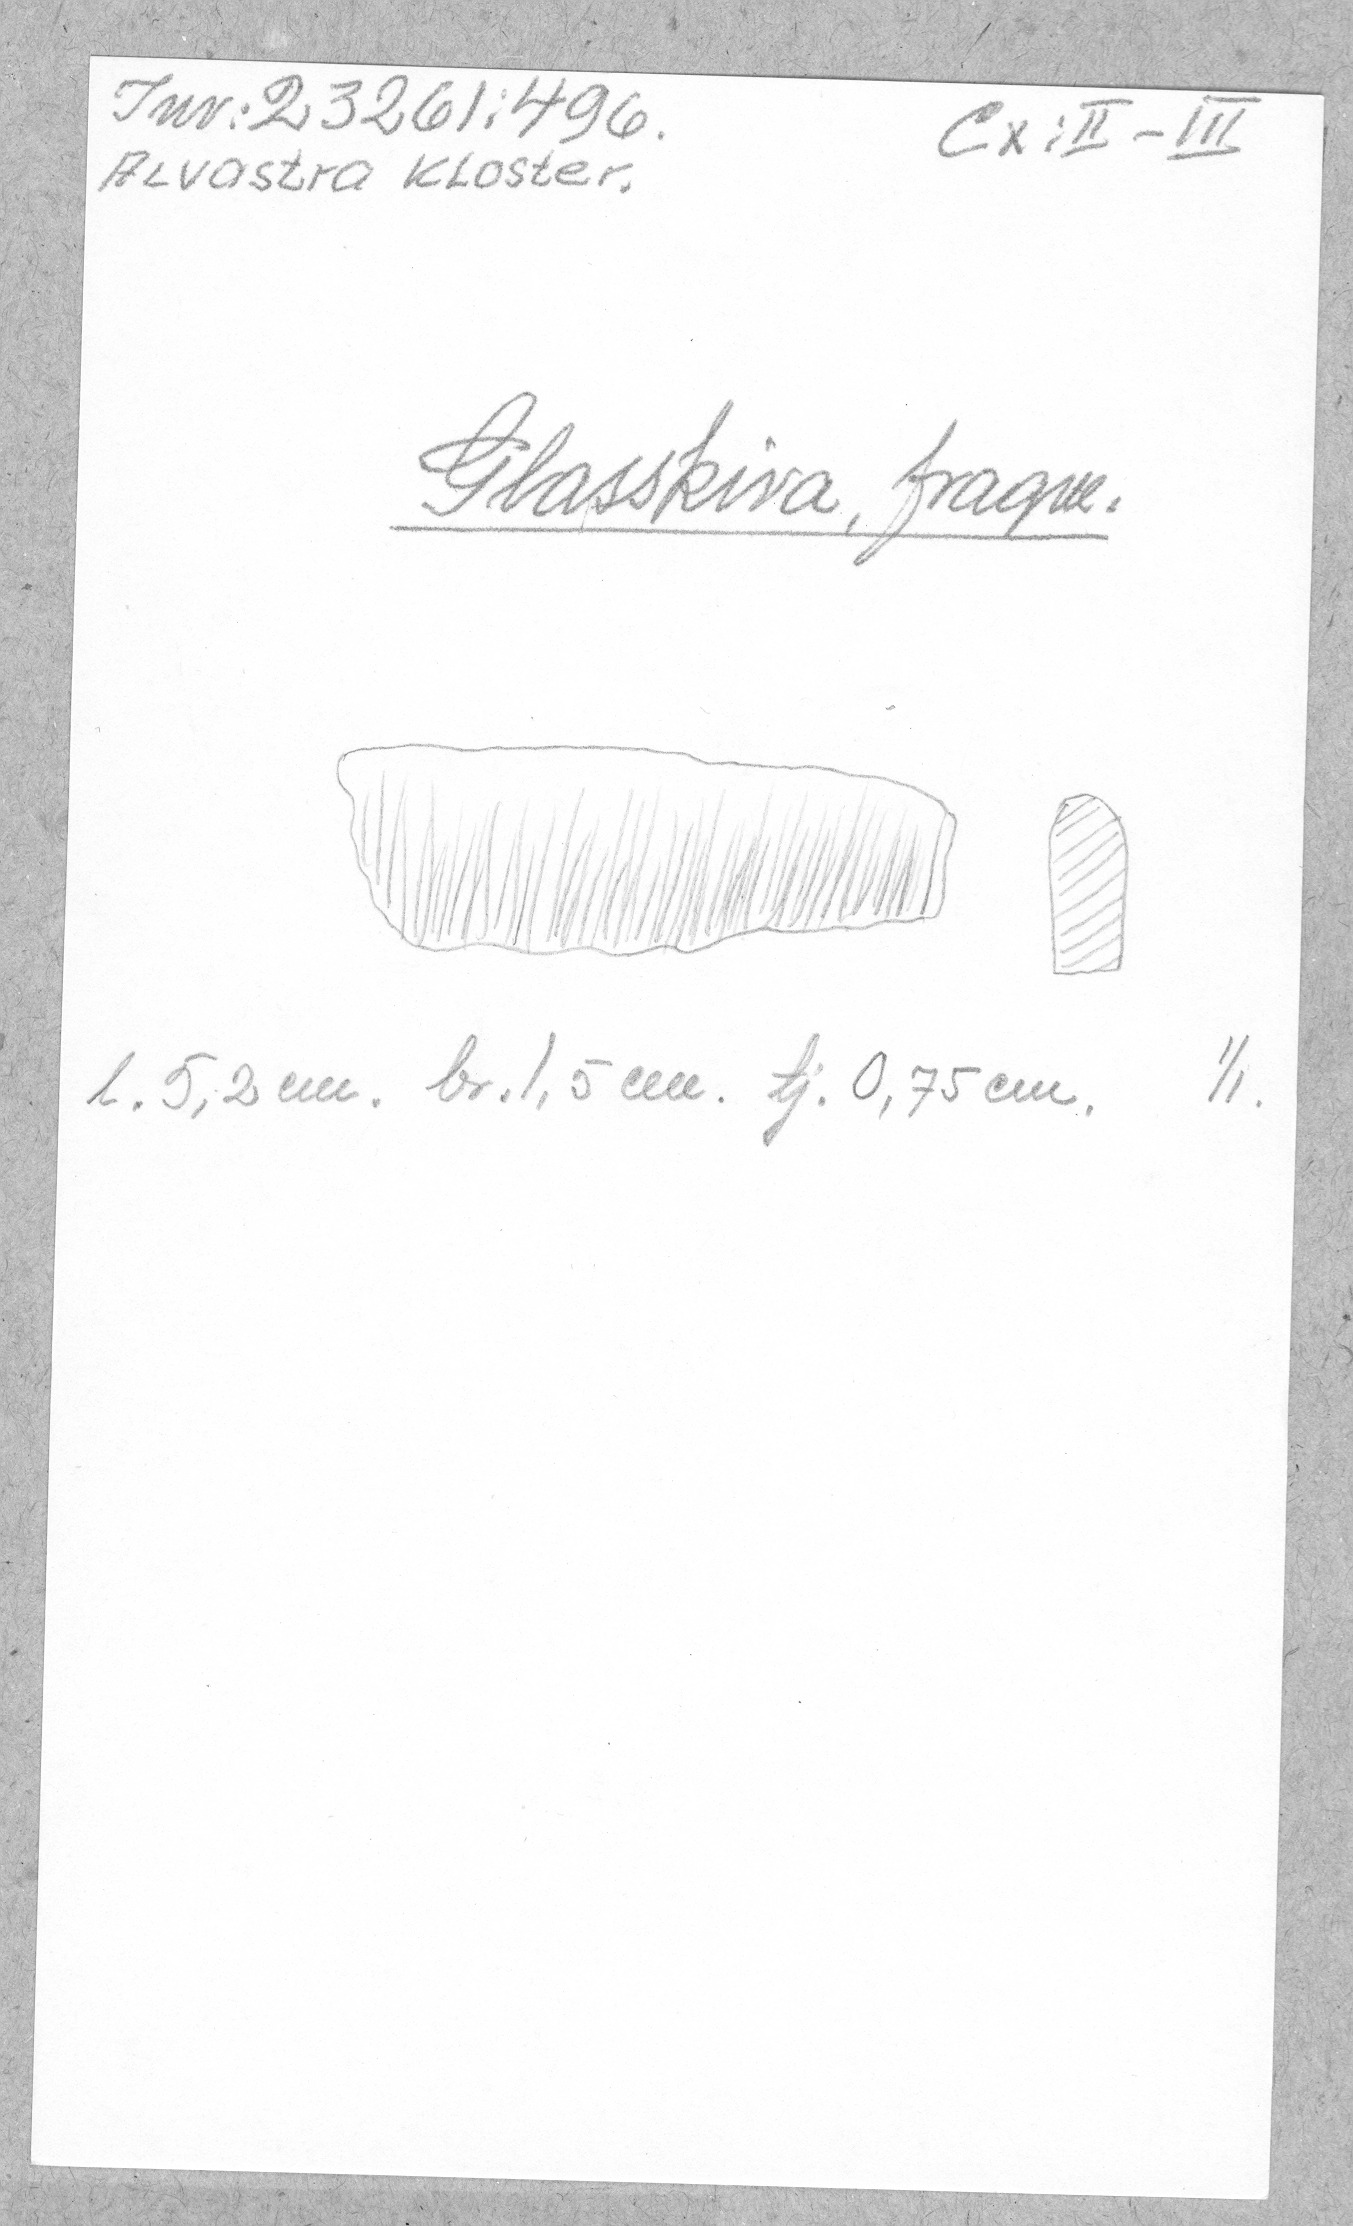 Inv: 23261:496.
Cx: II - III
Alvastra Kloster.
Glasskiva, fragm.
l. 5,2 cm. br. 1,5 cm. tj. 0,75 cm. 1/1.